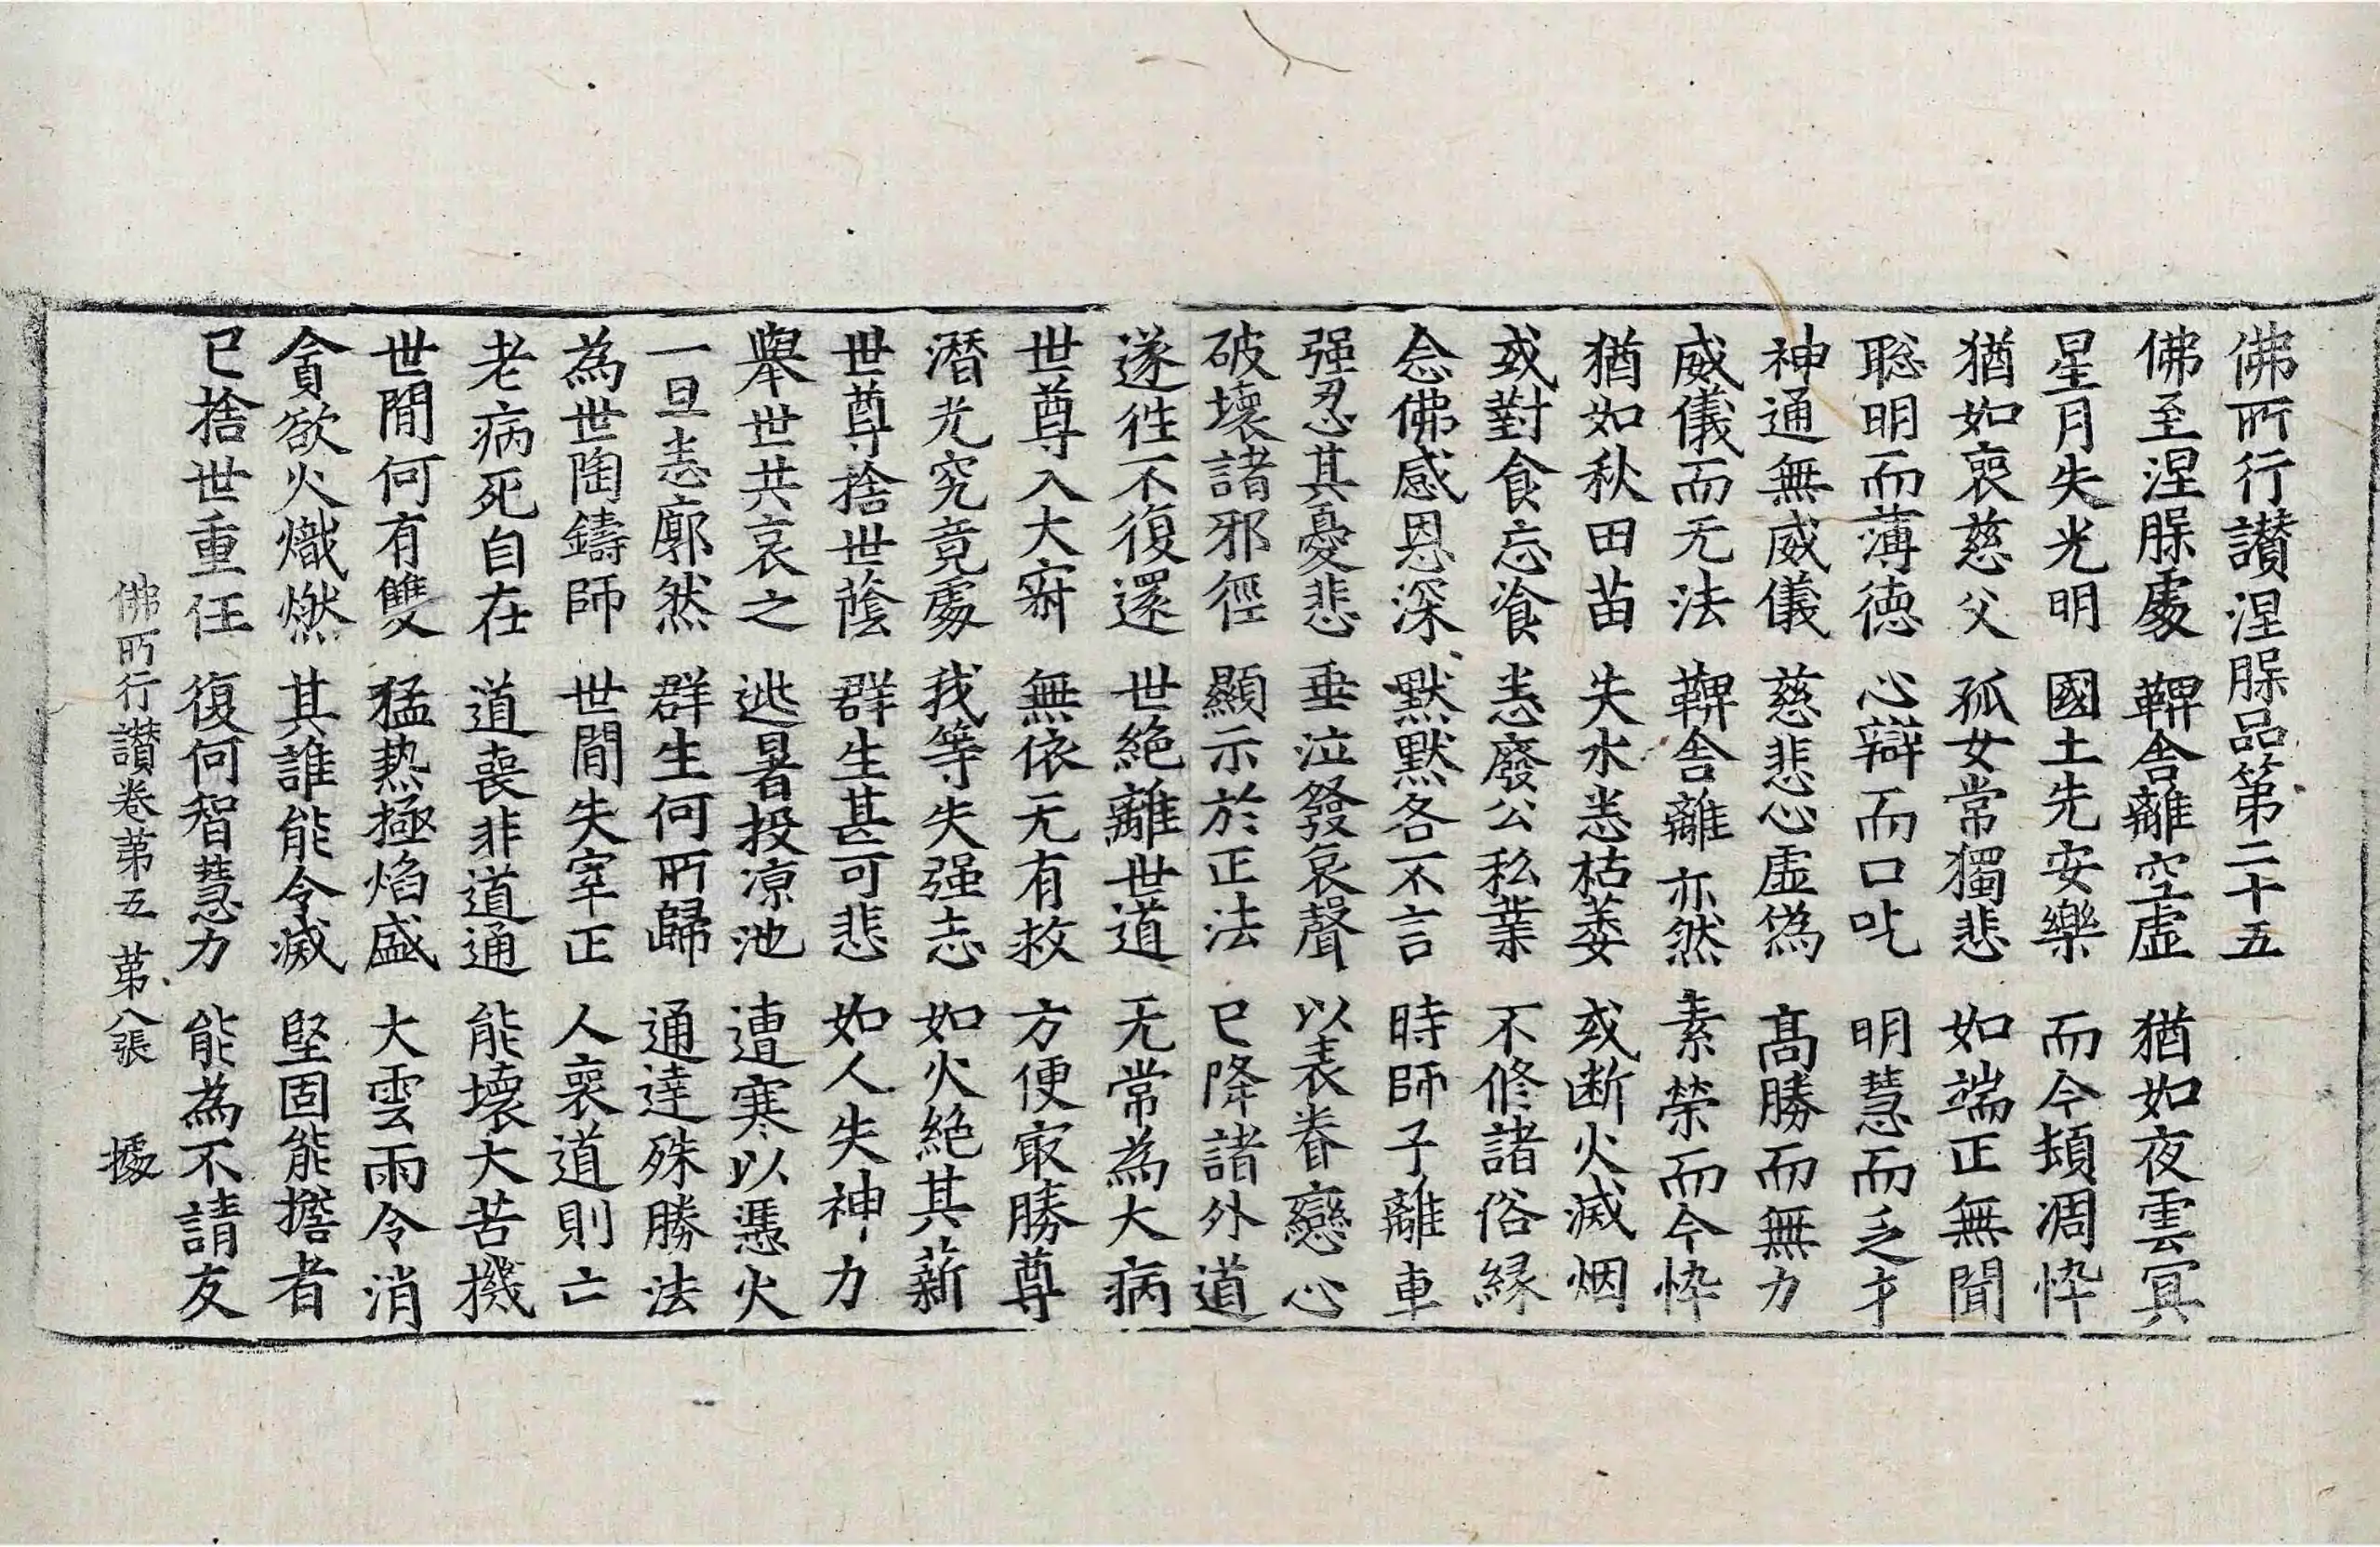 佛所行讃涅槃品第二十五
佛至涅槃處 鞞舍離空虛 猶如夜雲冥
星月失光明 國土先安樂 而今頓凋悴
猶如喪慈父 孤女常獨悲 如端正無聞
聡明而薄徳 心辯而口吃 明慧而乏才
神通無威儀 慈悲心虛偽 髙勝而無力
威儀而无法 鞞舍離亦然 素榮而今悴
猶如秋田苗 失水悉枯萎 或断火滅烟
或對食忘飡 悉廢公私業 不修諸俗縁
念佛感恩深 默默各不言 時師子離車
强忍其憂悲 垂泣發哀聲 以表眷戀心
破壞諸邪徑 顯示於正法 已降諸外道
遂徃不復還 世絶離世道 无常為大病
世尊入大寂 無依无有救 方便㝡勝尊
潜光究竟處 我等失强志 如火絶其薪
世尊捨世蔭 群生甚可悲 如人失神力
舉世共哀之 逃暑投凉池 遭寒以憑火
一旦悉廓然 群生何所歸 通達殊勝法
為世陶鑄師 世間失宰正 人喪道則亡
老病死自在 道喪非道通 能壞大苦機
世間何有雙 猛熱極焰盛 大雲雨令消
貪欲火熾燃 其誰能令滅 堅固能擔者
已捨世重任 復何智慧力 能為不請友
佛所行讃卷苐五 苐八張 㩀